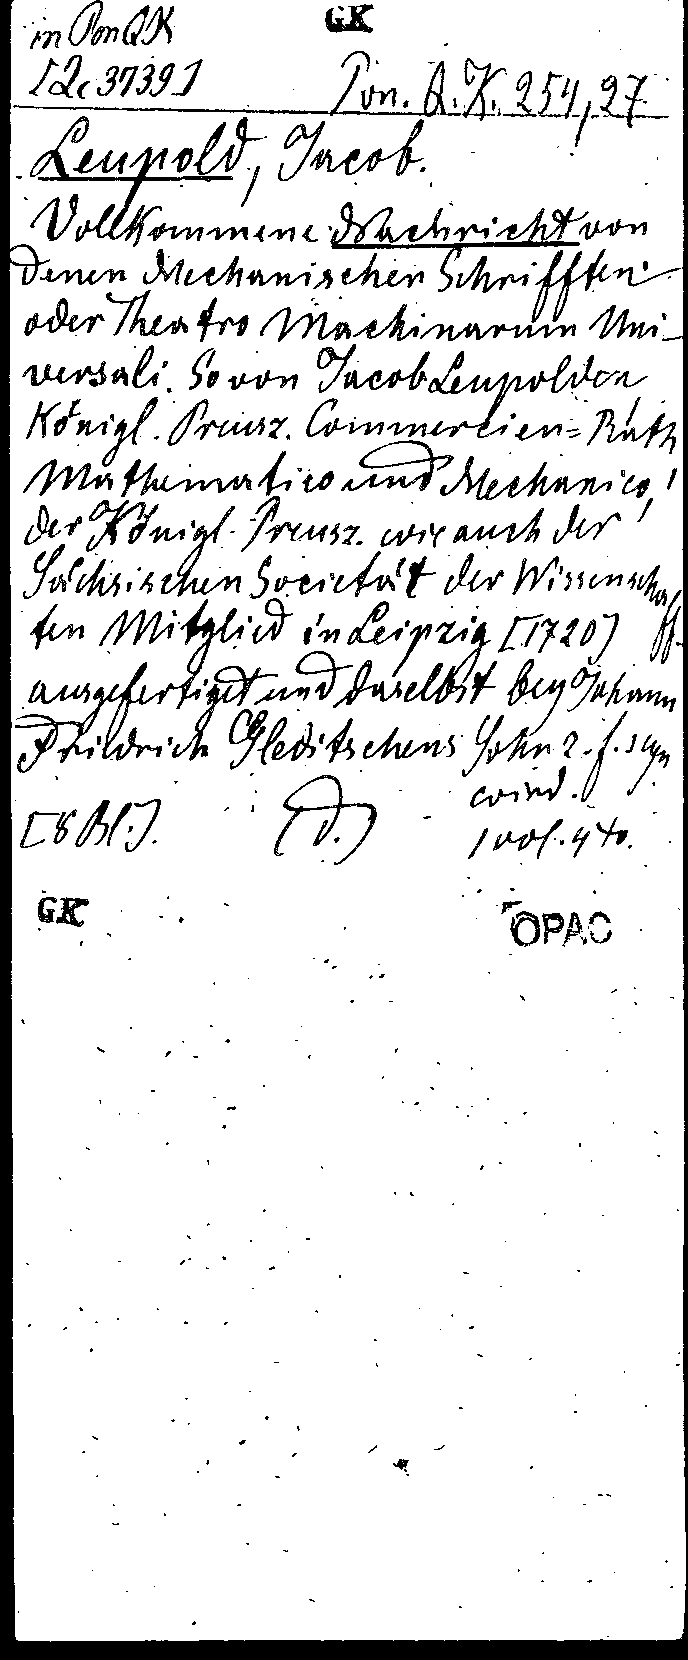 GK
in Pon QK
[2c 3739]
Pon. Q.K. 254,27
Leupold, Jacob.
Vollkommene Nachricht von
denen Mechanischen Schrifften
oder Theatro Machinarum Uni-
versali. So von Jacob Leupolden
Königl. Preusz. Commercien=Rath
Mathematico und Mechanico,
der Königl. Preusz. wie auch der
Sächsischen Societät der Wissenschaff-
ten Mitglied in Leipzig [1720]
ausgefertiget und daselbst bey Johann
Friedrich Gleditschens Sohn z. f. seyn
wird.
[8 Bl.]. (d.) 1 vol. 4to.
GK
OPAC